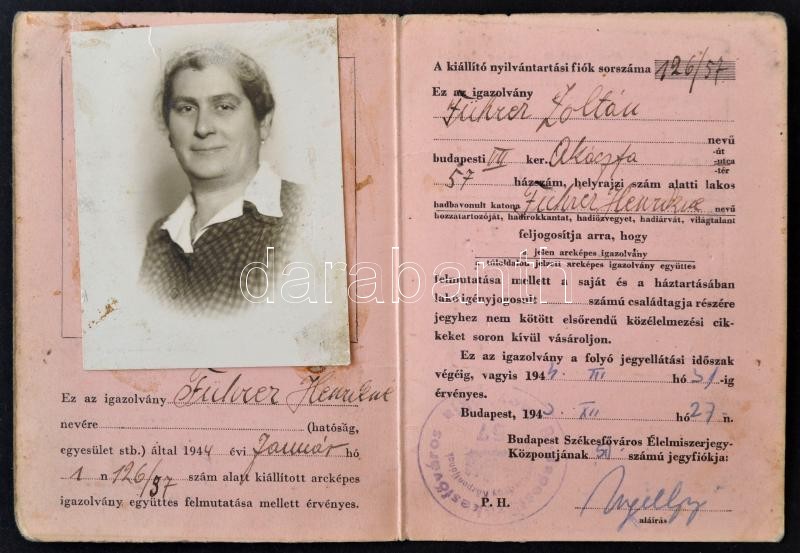 Ez az igazolvány Führer Henrikné
nevére (hatóság,
egyesület stb.) által 1944 évi Január hó
1 n 126/57 szám alatt kiállított arcképes
igazolvány együttes felmutatása mellett érvényes.
A kiállító nyilvántartási fiók sorszáma 126/57
Ez az igazolvány
Führer Zoltán
nevű
-út
budapesti VII ker. Akácfa -utca
-tér
57 házszám, helyrajzi szám alatti lakos
hadbavonult katona Führer Henrikné nevű
hozzátartozóját, hadirokkantat, hadiözvegyet, hadiárvát, világtalant
feljogosítja arra, hogy
jelen arcképes igazolvány
a túloldalon jelzett arcképes igazolvány együttes
felmutatása mellett a saját és a háztartásában
lakó igényjogosult számú családtagja részére
jegyhez nem kötött elsőrendű közélelmezési cik-
keket soron kívül vásároljon.
Ez az igazolvány a folyó jegyellátási időszak
végéig, vagyis 194 III hó 31-ig
érvényes.
Budapest, 1943 XII hó 27-n.
Budapest Székesfőváros Élelmiszerjegy-
Központjának számú jegyfiókja:
P. H.
aláírás
darabanth.com